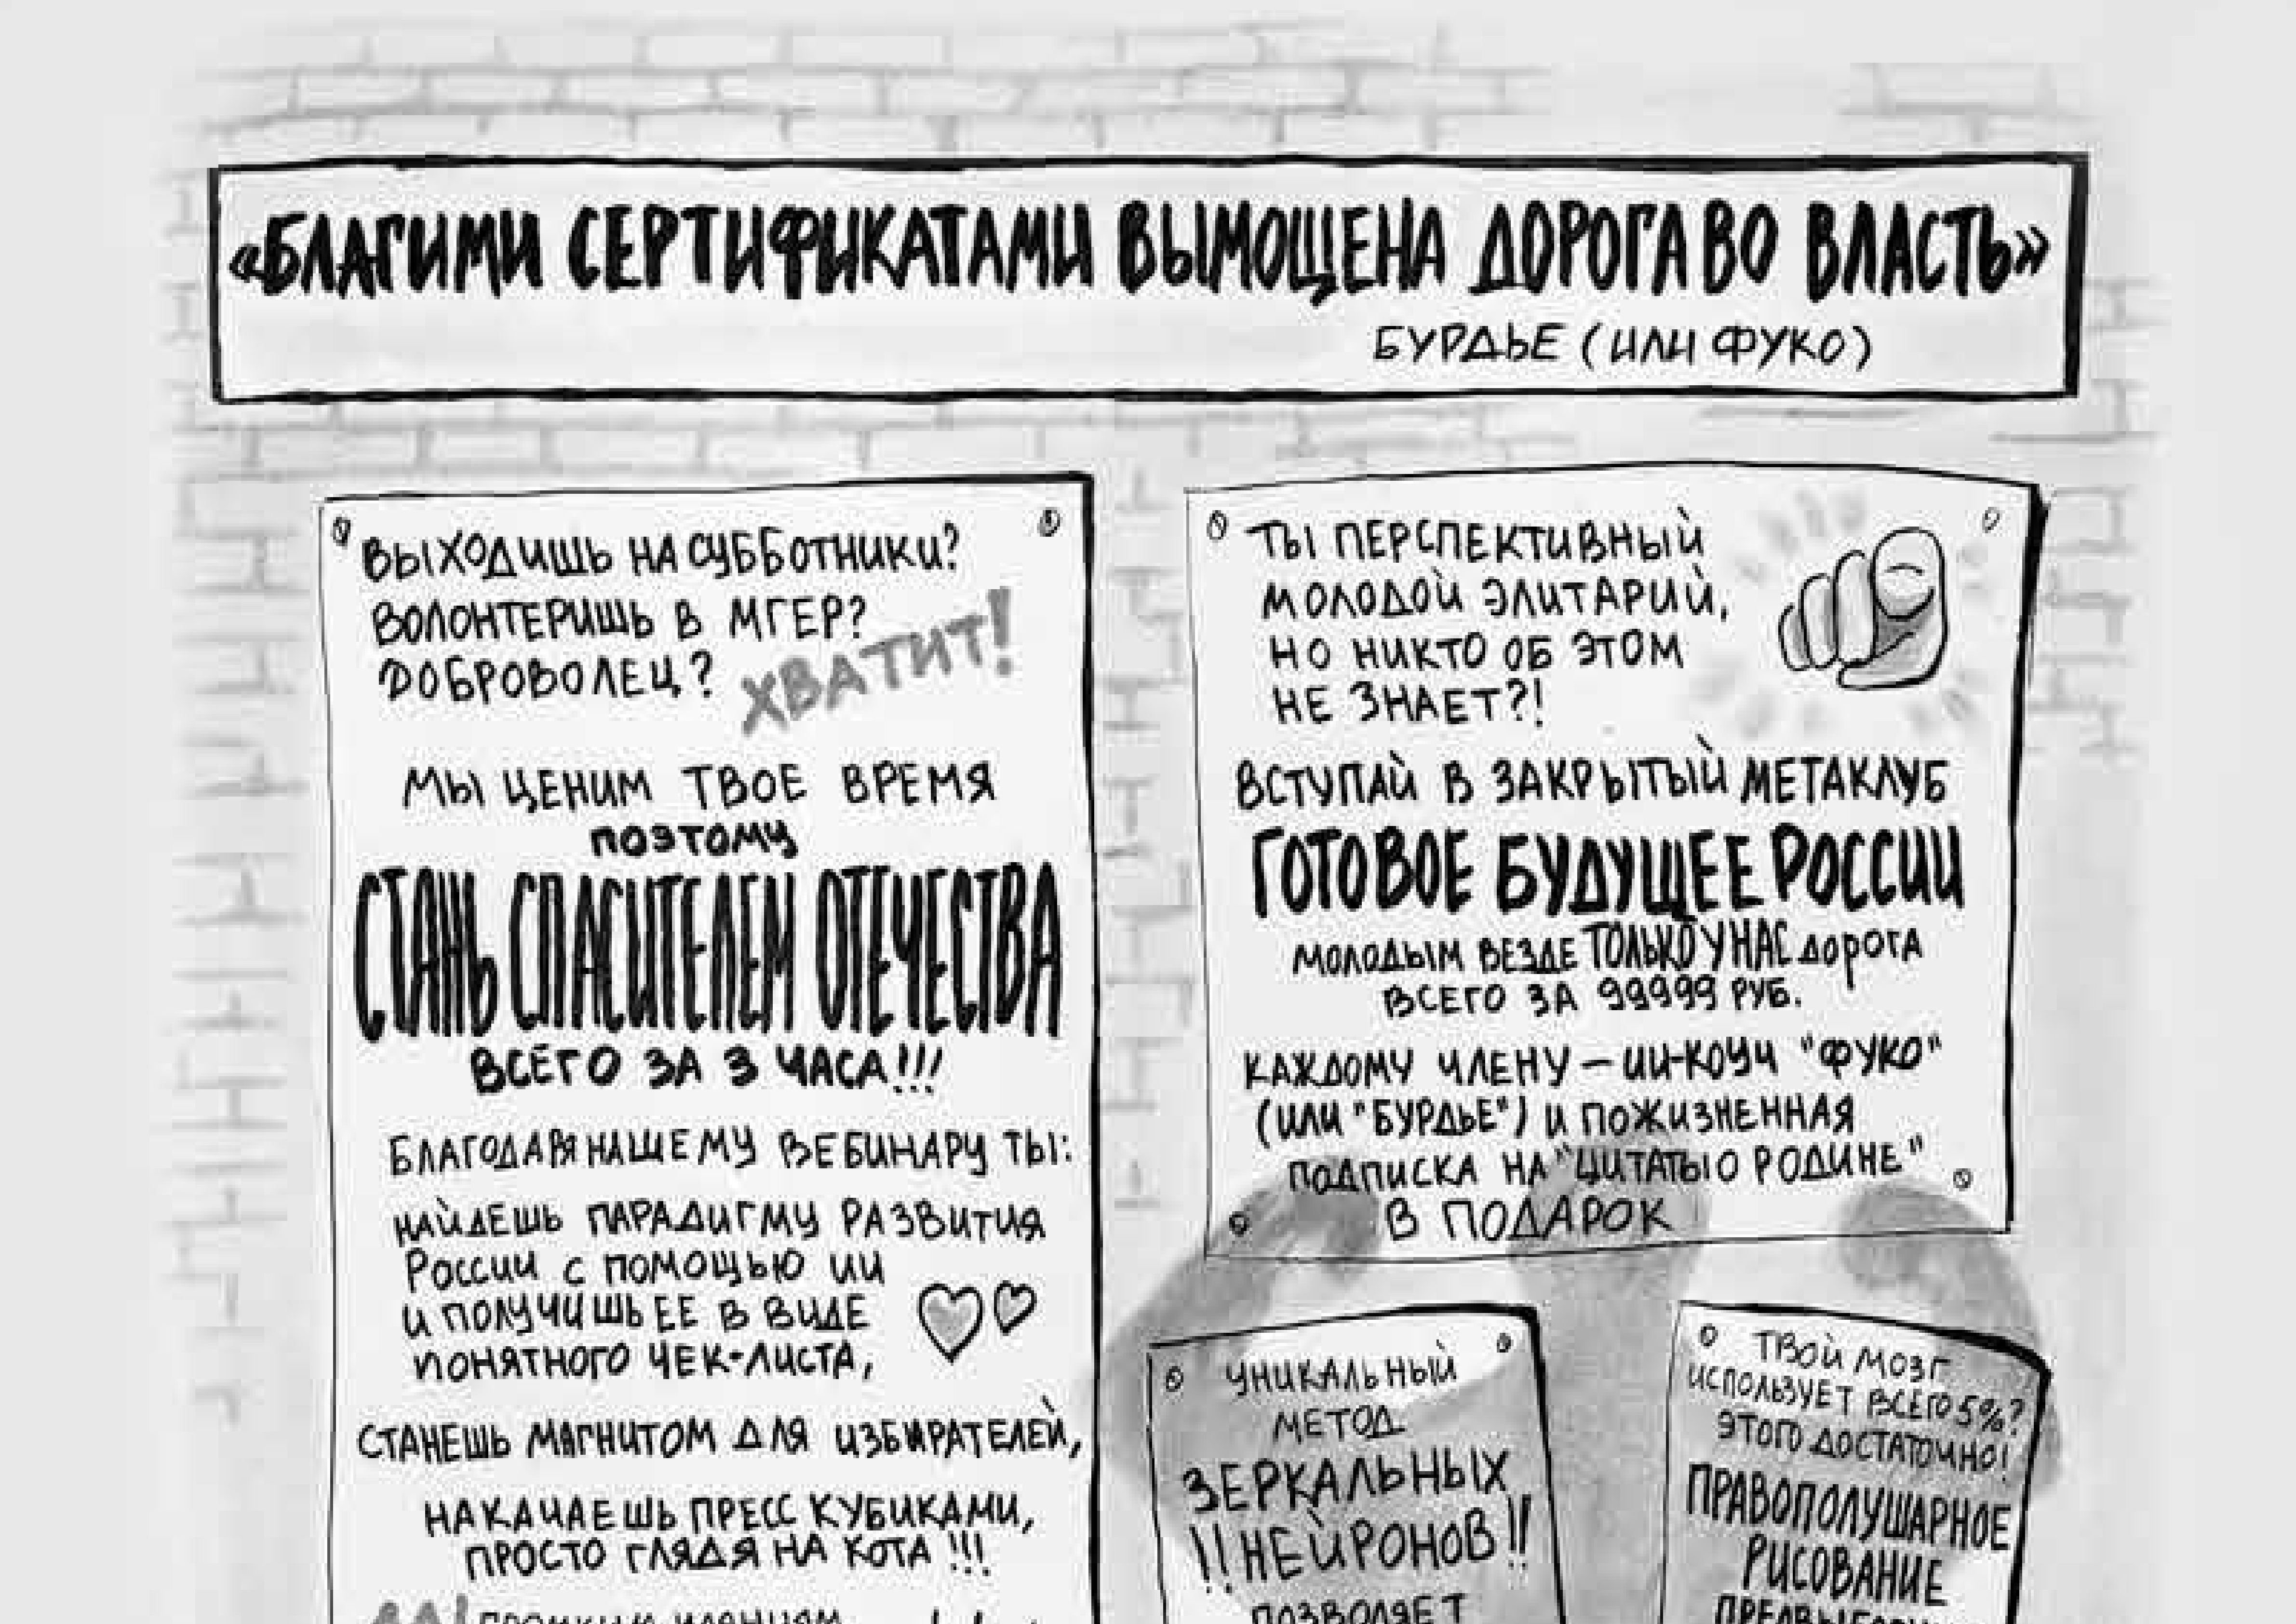 «БЛАГИМИ СЕРТИФИКАТАМИ ВЫМОЩЕНА ДОРОГА ВО ВЛАСТЬ»
БУРДЬЕ (ИЛИ ФУКО)
ВЫХОДИШЬ НА СУББОТНИКИ?
ВОЛОНТЕРИШЬ В МГЕР?
ДОБРОВОЛЕЦ?
ХВАТИТ!
МЫ ЦЕНИМ ТВОЕ ВРЕМЯ
ПОЭТОМУ
СТАНЬ СПАСИТЕЛЕМ ОТЕЧЕСТВА
ВСЕГО ЗА 3 ЧАСА!!!
БЛАГОДАРЯ НАШЕМУ ВЕБИНАРУ ТЫ:
НАЙДЕШЬ ПАРАДИГМУ РАЗВИТИЯ
РОССИИ С ПОМОЩЬЮ ИИ
И ПОЛУЧИШЬ ЕЕ В ВИДЕ
ПОНЯТНОГО ЧЕК-ЛИСТА,
СТАНЕШЬ МАГНИТОМ ДЛЯ ИЗБИРАТЕЛЕЙ,
НАКАЧАЕШЬ ПРЕСС КУБИКАМИ,
ПРОСТО ГЛЯДЯ НА КОТА !!!
ТЫ ПЕРСПЕКТИВНЫЙ
МОЛОДОЙ ЭЛИТАРИЙ,
НО НИКТО ОБ ЭТОМ
НЕ ЗНАЕТ?!
ВСТУПАЙ В ЗАКРЫТЫЙ МЕТАКЛУБ
ГОТОВОЕ БУДУЩЕЕ РОССИИ
МОЛОДЫМ ВЕЗДЕ ТОЛЬКО У НАС ДОРОГА
ВСЕГО ЗА 99999 РУБ.
КАЖДОМУ ЧЛЕНУ – ИИ-КОУЧ "ФУКО"
(ИЛИ "БУРДЬЕ") И ПОЖИЗНЕННАЯ
ПОДПИСКА НА "ЦИТАТЫ О РОДИНЕ"
В ПОДАРОК
УНИКАЛЬНЫЙ
МЕТОД
ЗЕРКАЛЬНЫХ
!!НЕЙРОНОВ!!
ПОЗВОЛЯЕТ
ТВОЙ МОЗГ
ИСПОЛЬЗУЕТ ВСЕГО 5%?
ЭТОГО ДОСТАТОЧНО!
ПРАВОПОЛУШАРНОЕ
РИСОВАНИЕ